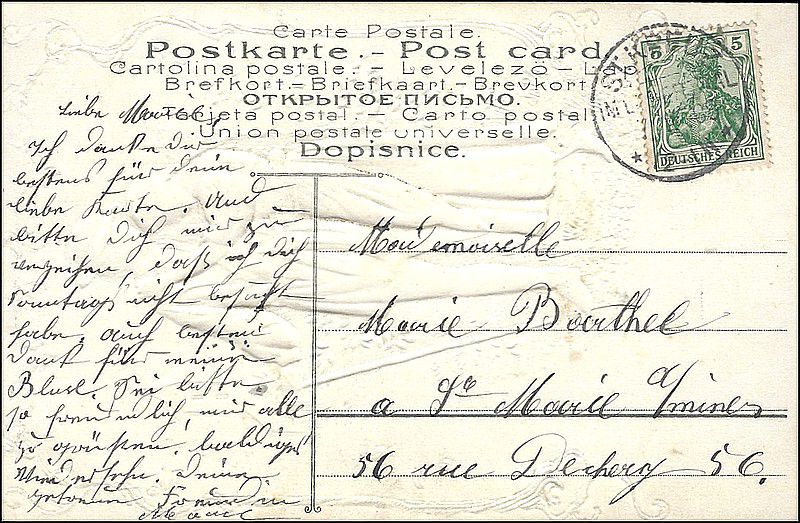 Carte Postale.
Postkarte.- Post card.
Cartolina postale. - Levelező - L
Brefkort.- Briefkaart.- Brevkort
ОТКРЫТОЕ ПИСЬМО.
Tarjeta postal. - Carto postal
Union postale universelle.
Dopisnice.
5 5
DEUTSCHES REICH
Liebe
Ich danke dir
bestens für deine
liebe Karte. Und
bitte Dich mir zu
verzeihen, daß ich dich
Sonntags nicht besucht
habe, auch besten
Dank für meine
Bluse. Sei bitte
so freundlich, mir alle
zu grüßen. baldiges
Wiedersehn. Deine
getreue Freundin
Mademoiselle
Marie Boerthel
a Ste Marie a/mines
56 rue 56.